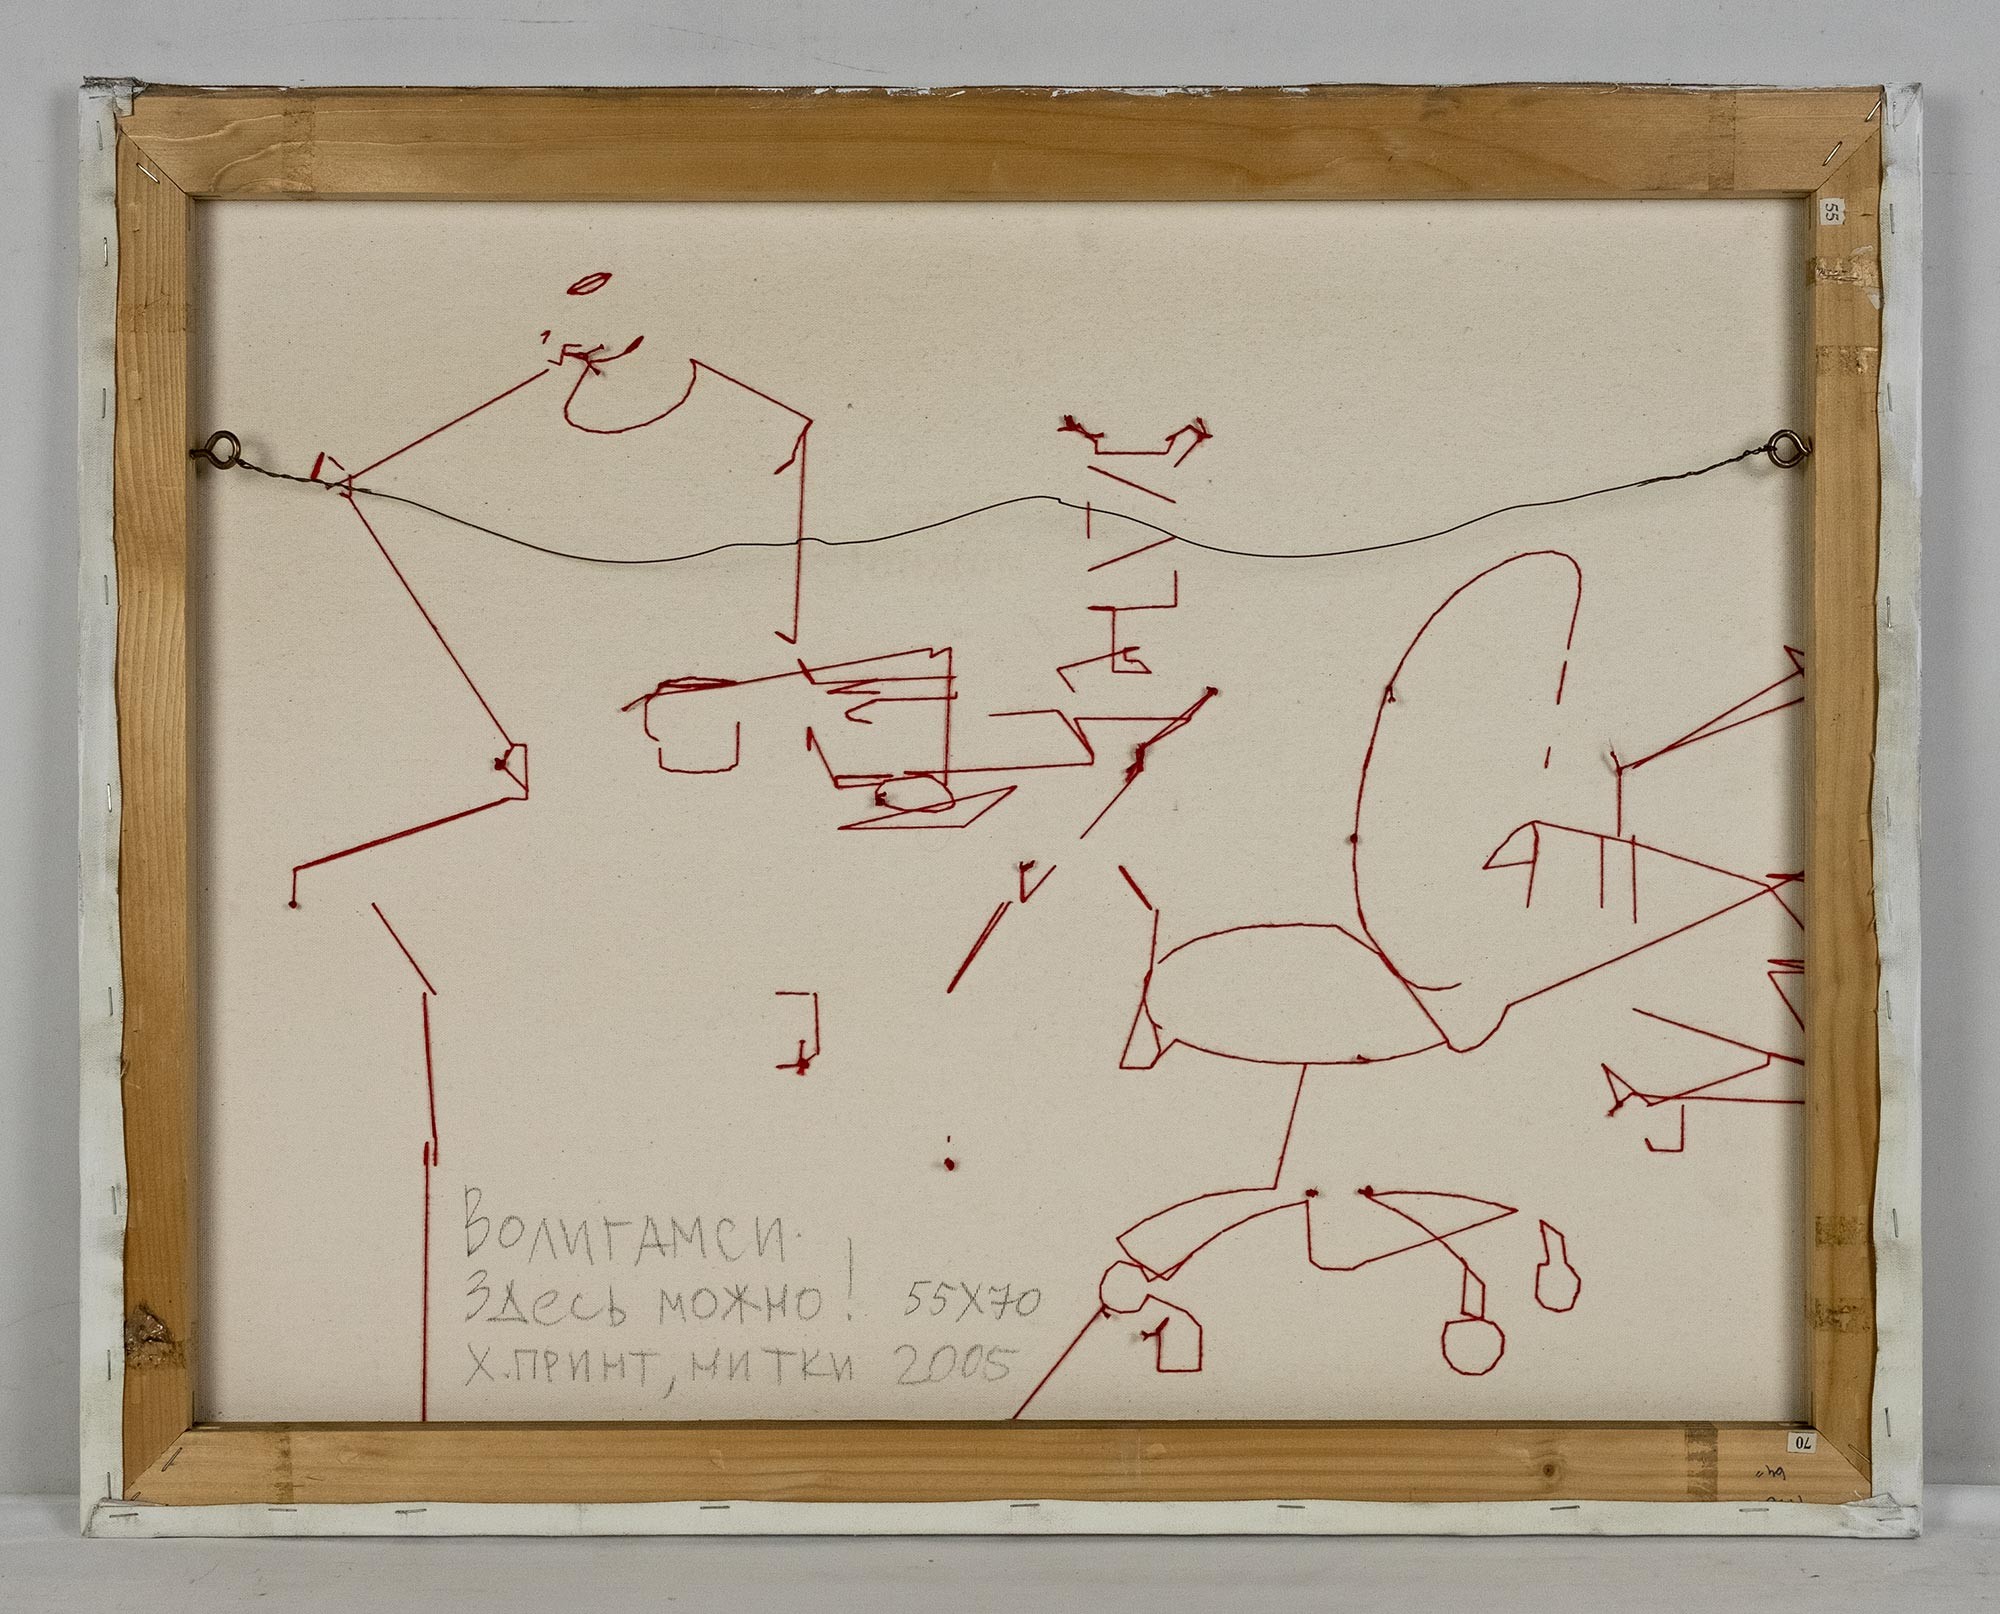 55
Волигамси.
Здесь можно! 55х70
х.принт, нитки 2005
70